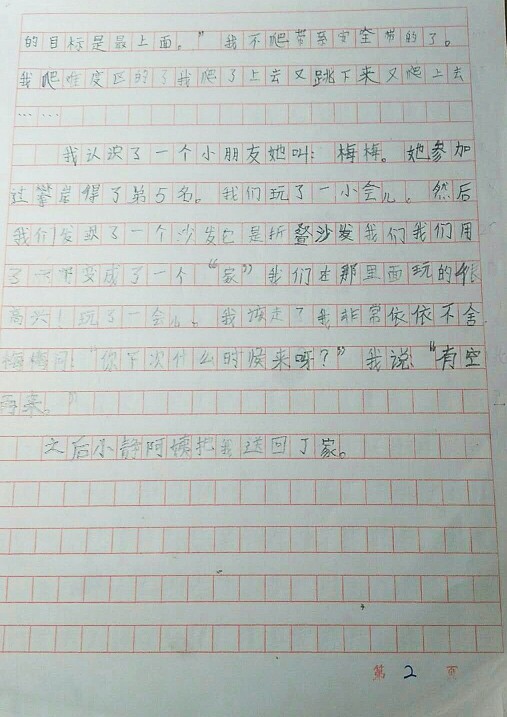 的目标是最上面。”我不爬带系安全带的了。
我爬难度区的了我爬了上去又跳下来又爬上去
……
我认识了一个小朋友她叫：梅梅。她参加
过攀岩得了第5名。我们玩了一小会儿、然后
我们发现了一个沙发它是折叠沙发我们我们用
了变成了一个“家”我们在那里面玩的很
高兴！玩了一会儿、我该走了我非常依依不舍
梅梅问：“你下次什么的候来呀？”我说“有空
再来。”
之后小静阿姨把我送回了家。
第 2 页